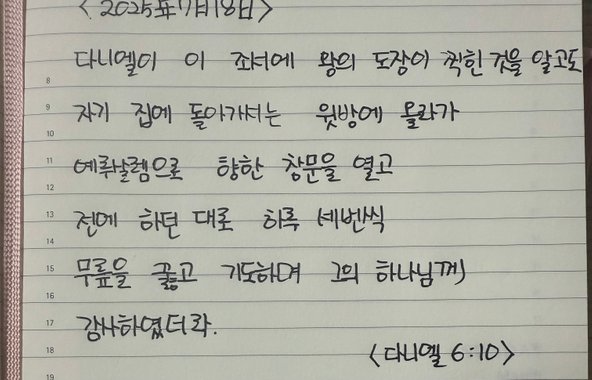 <2025年 7月 18日>
다니엘이 이 조서에 왕의 도장이 찍힌 것을 알고도
8
자기 집에 돌아가서는 윗방에 올라가
9
10
예루살렘으로 향한 창문을 열고
11
12
전에 하던 대로 하루 세번씩
13
14
무릎을 꿇고 기도하며 그의 하나님께
15
16
감사하였더라.
17
<다니엘 6:10>
18
19